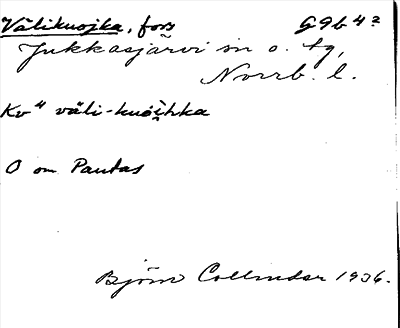 Välikuojka, fors G9b4²
Jukkasjärvi sn o. tg,
Norrb. l.
Kv" väli-kuoihka
O om Pautas
Björn Collinder 1936.